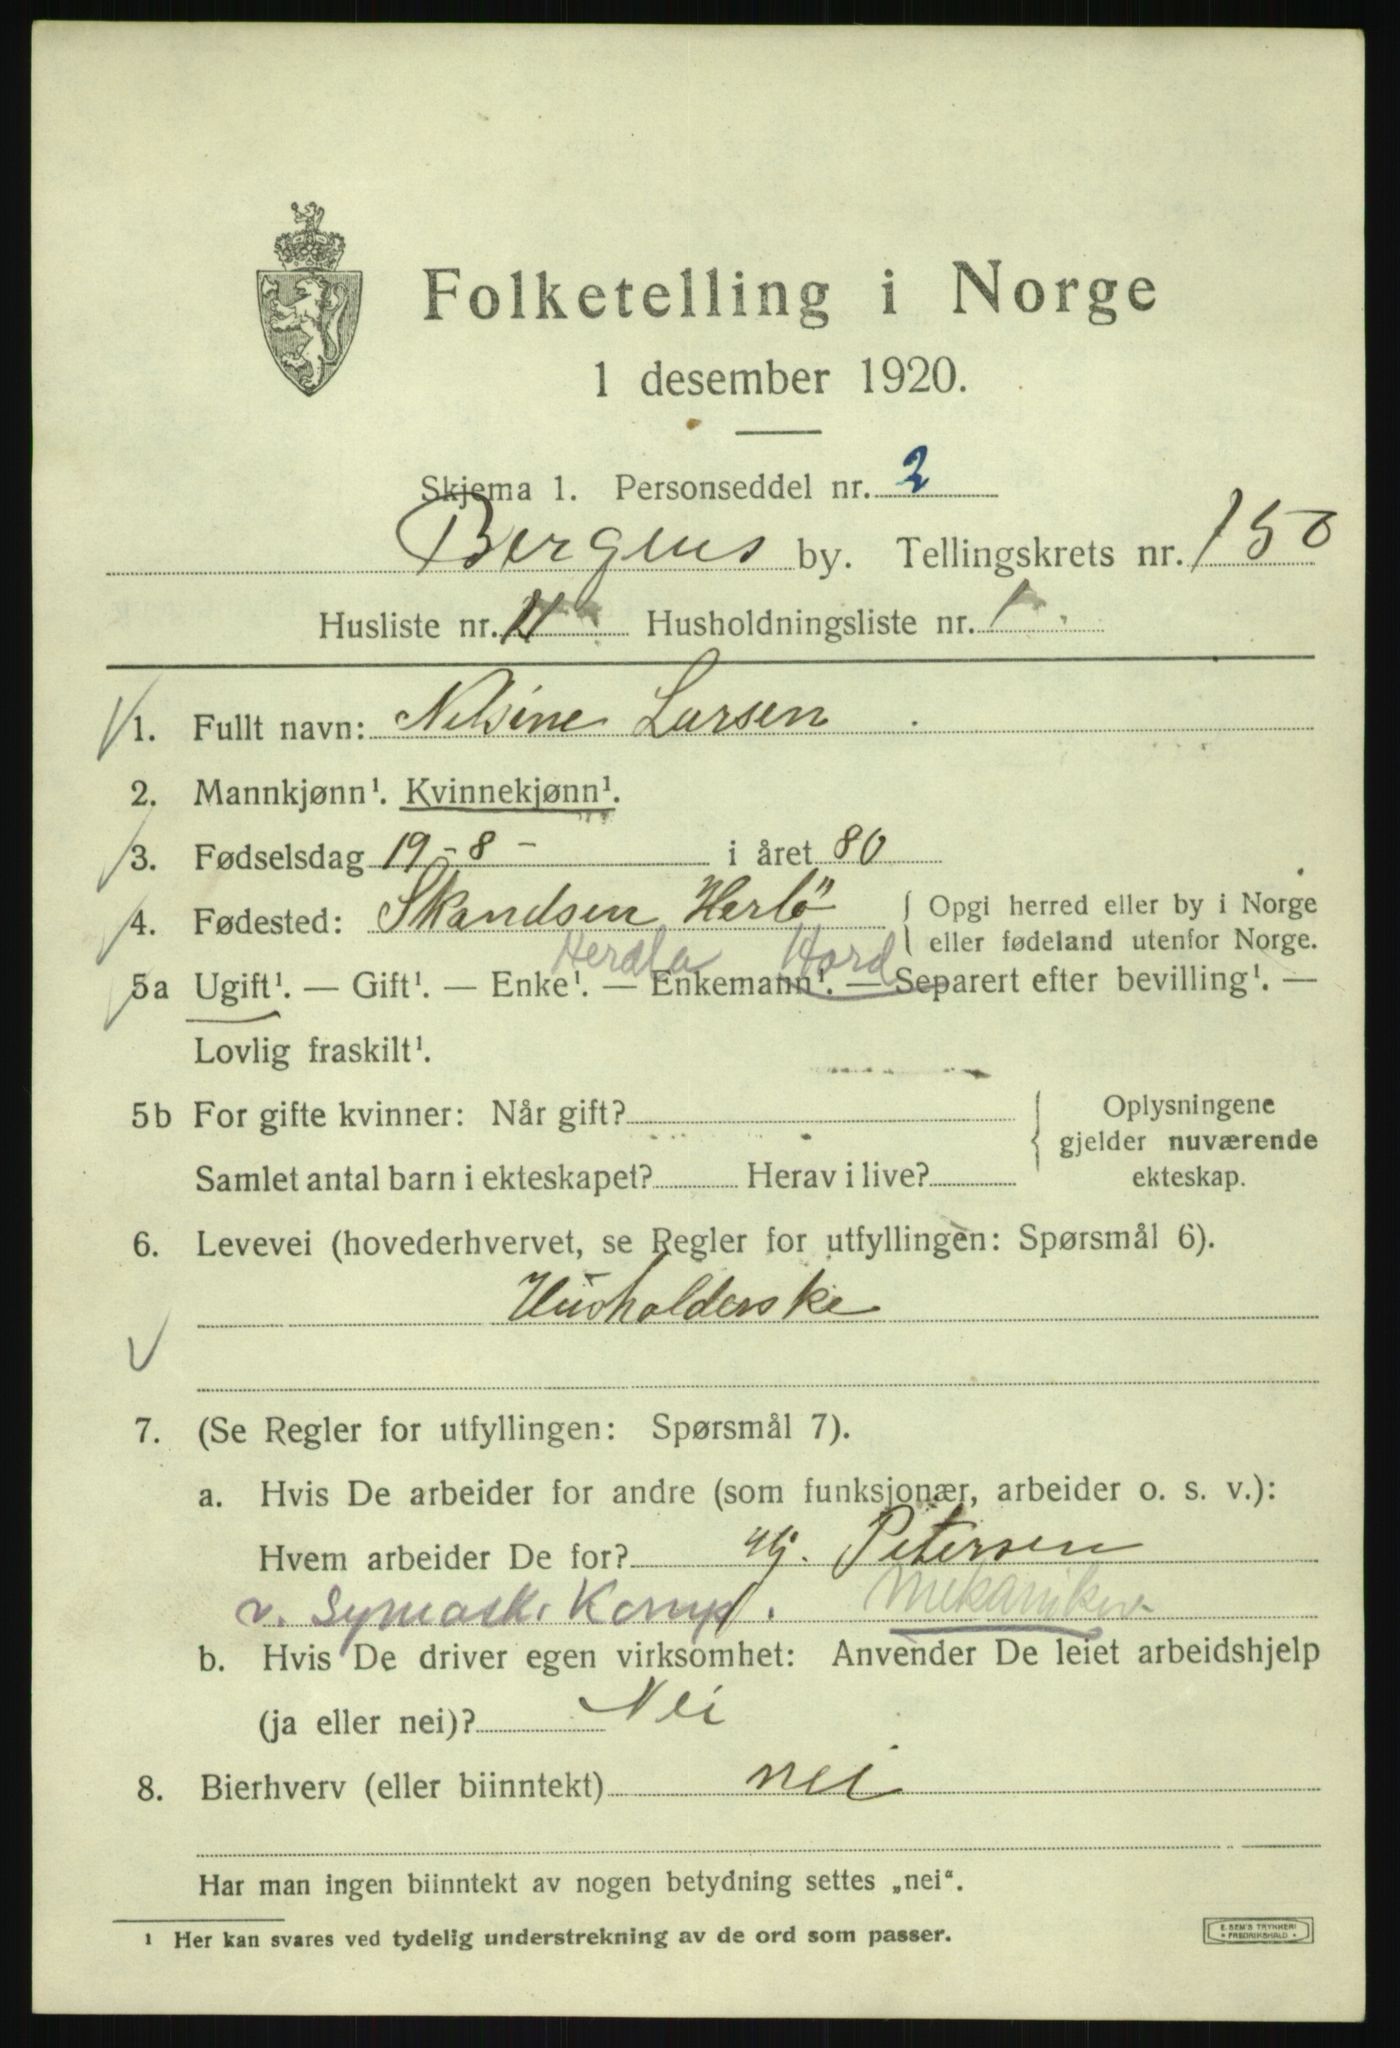 Folketelling i Norge
1 desember 1920.
Skjema 1. Personseddel nr. 2
Bergens by. Tellingskrets nr. 150
Husliste nr. 11 Husholdningsliste nr. 1
1. Fullt navn: Nilsine Larsen
2. Mannkjønn¹. Kvinnekjønn¹.
3. Fødselsdag 19-8- i året 80
4. Fødested: Skandsen Herlö { Opgi herred eller by i Norge
eller fødeland utenfor Norge.
Herdla Hord
5a Ugift¹. — Gift¹. — Enke¹. — Enkemann¹. — Separert efter bevilling¹. —
Lovlig fraskilt¹.
5b For gifte kvinner: Når gift? { Oplysningene
gjelder nuværende
Samlet antal barn i ekteskapet? Herav i live? ekteskap.
6. Levevei (hovederhvervet, se Regler for utfyllingen: Spørsmål 6).
Husholderske
7. (Se Regler for utfyllingen: Spørsmål 7).
a. Hvis De arbeider for andre (som funksjonær, arbeider o. s. v.):
Hvem arbeider De for? Petersen
v. Symask. Komp. Mekaniker
b. Hvis De driver egen virksomhet: Anvender De leiet arbeidshjelp
(ja eller nei)? Nei
8. Bierhverv (eller biinntekt) nei
Har man ingen biinntekt av nogen betydning settes „nei“.
¹ Her kan svares ved tydelig understrekning av de ord som passer.
E. SEM'S TRYKKERI
* FREDRIKSHALD *